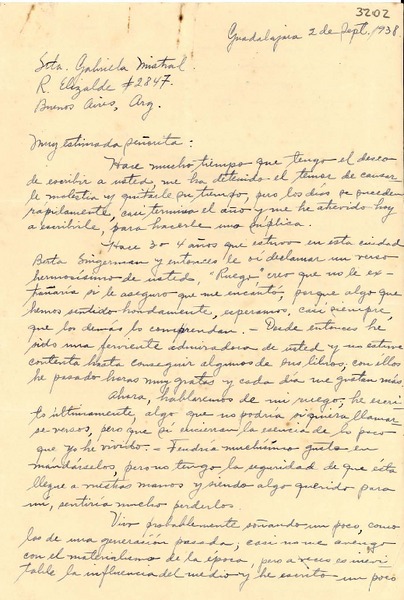 3202
Guadalajara 2 de Sept. 1938.
Srta. Gabriela Mistral.
R. Elizalde #2847.
Buenos Aires, Arg.
Muy estimada señorita:
Hace mucho tiempo que tengo el deseo
de escribir a usted, me ha detenido el temor de causar
le molestia y quitarle su tiempo, pero los días se suceden
rapidamente, casi termina el año y me he atrevido hoy
a escribirle, para hacerle una súplica.
Hace 3 o 4 años que estuvo en esta ciudad
Berta Singerman y entonces le oí declamar un verso
hermosísimo de usted, "Ruego" creo que no le ex-
trañaría si le aseguro que me encantó, porque algo que
hemos sentido hondamente, esperamos, casi siempre,
que los demás lo comprendan. - Desde entonces he
sido una ferviente admiradora de usted y no estuve
contenta hasta conseguir algunos de sus libros, con ellos
he pasado horas muy gratas y cada día me gustan más.
Ahora, hablaremos de mi ruego, he escri-
to últimamente, algo que no podría siquiera llamar
se versos, pero que sí encierran la esencia de lo poco
que yo he vivido. - Tendría muchísimo gusto en
mandárselos, pero no tengo la seguridad de que ésta
llegue a vuestras manos y siendo algo querido para
mí, sentiría mucho perderlos.
Vivo probablemente soñando un poco, como
los de una generación pasada; casi no me avengo
con el materialismo de la época, pero a veces es inevi-
table la influencia del medio y he escrito un poco